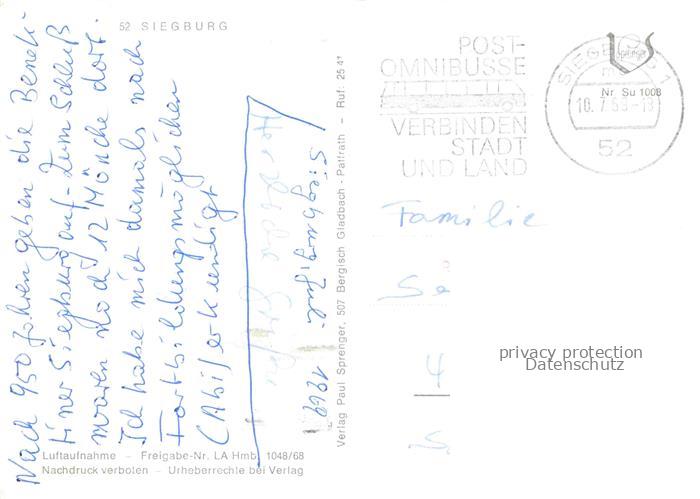 52 SIEGBURG
Nach 950 Jahren geben die Benedi-
tiner Siegburg auf - zum Schluß
waren noch 12 Mönche dort.
Ich habe mich damals nach
Fortbildungsmöglichen
(Abi) erkundigt
Siegburg, Juli
1968
Luftaufnahme – Freigabe-Nr. LA Hmb. 1048/68
Nachdruck verboten – Urheberrechte bei Verlag
Verlag Paul Sprenger, 507 Bergisch Gladbach - Paffrath - Ruf: 25 41
POST-
OMNIBUSSE
VERBINDEN
STADT
UND LAND
SIEGBURG 1
10.7.
52
Nr. Su 1008
Familie
Se
4
S
privacy protection
Datenschutz